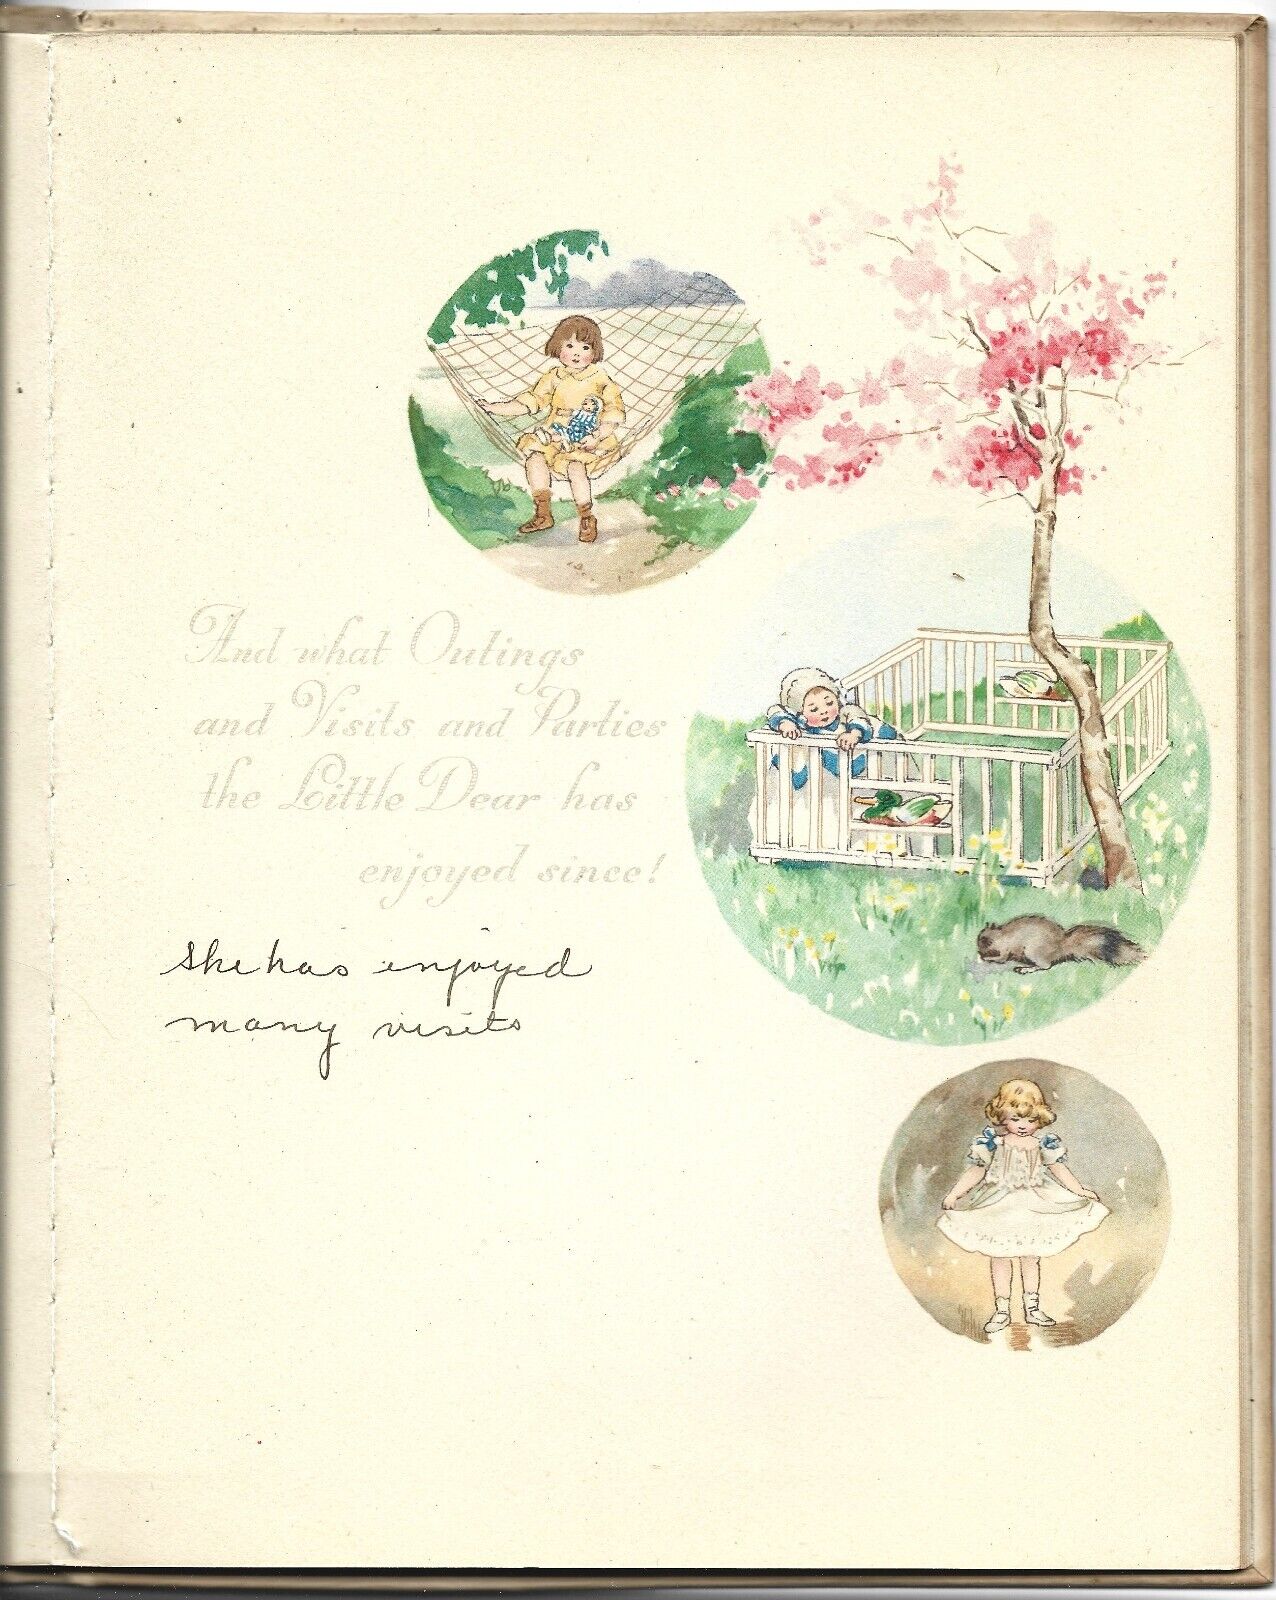 And what Outings
and Visits and Parties
the Little Dear has
enjoyed since!
She has enjoyed
many visits